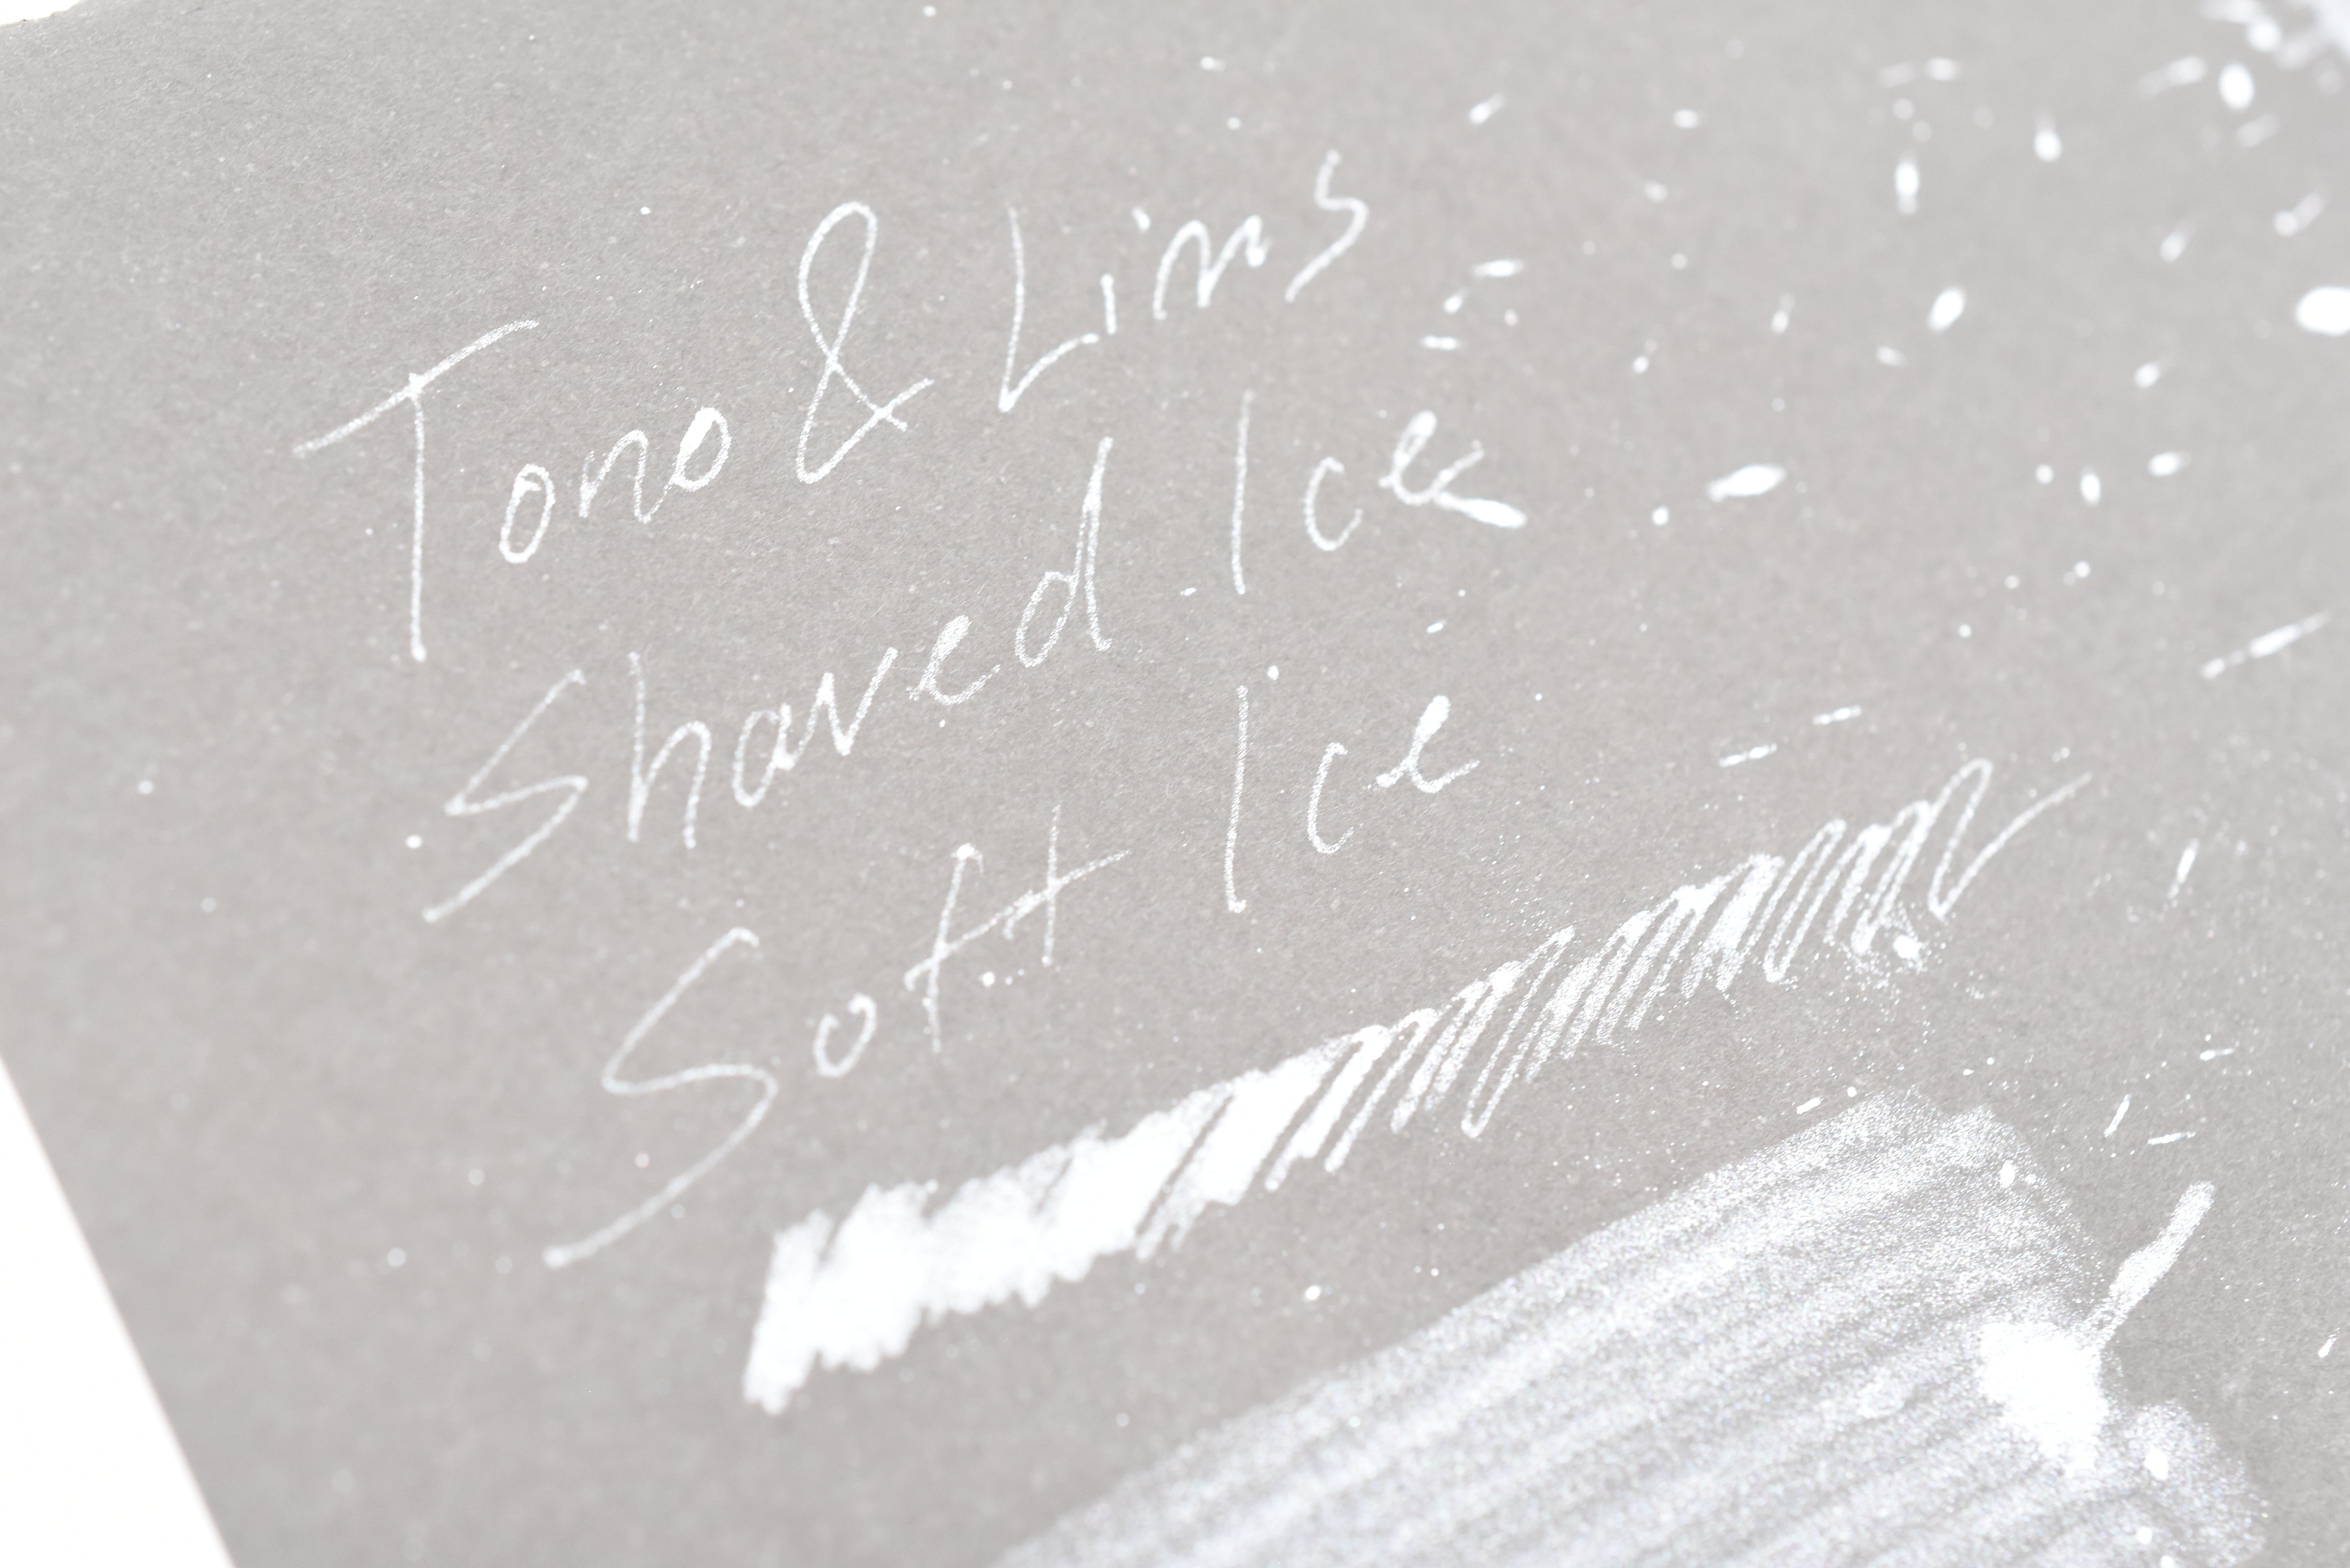 Tono & Lims
Shaved Ice
Soft Ice